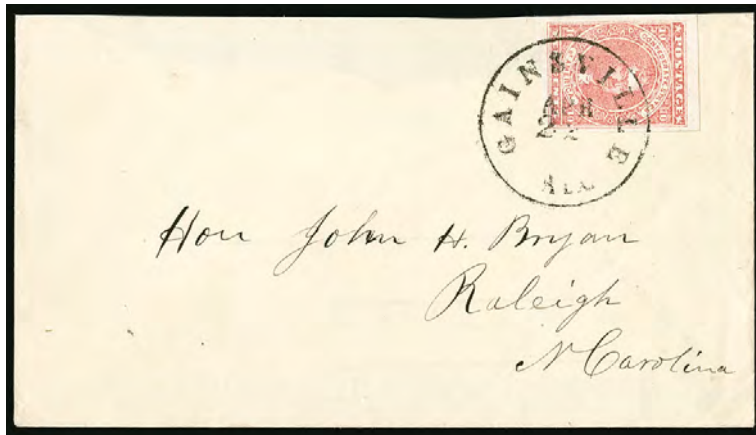 GAINSVILLE
APR
22
ALA.
POSTAGE
Hon John H. Bryan
Raleigh
N Carolina